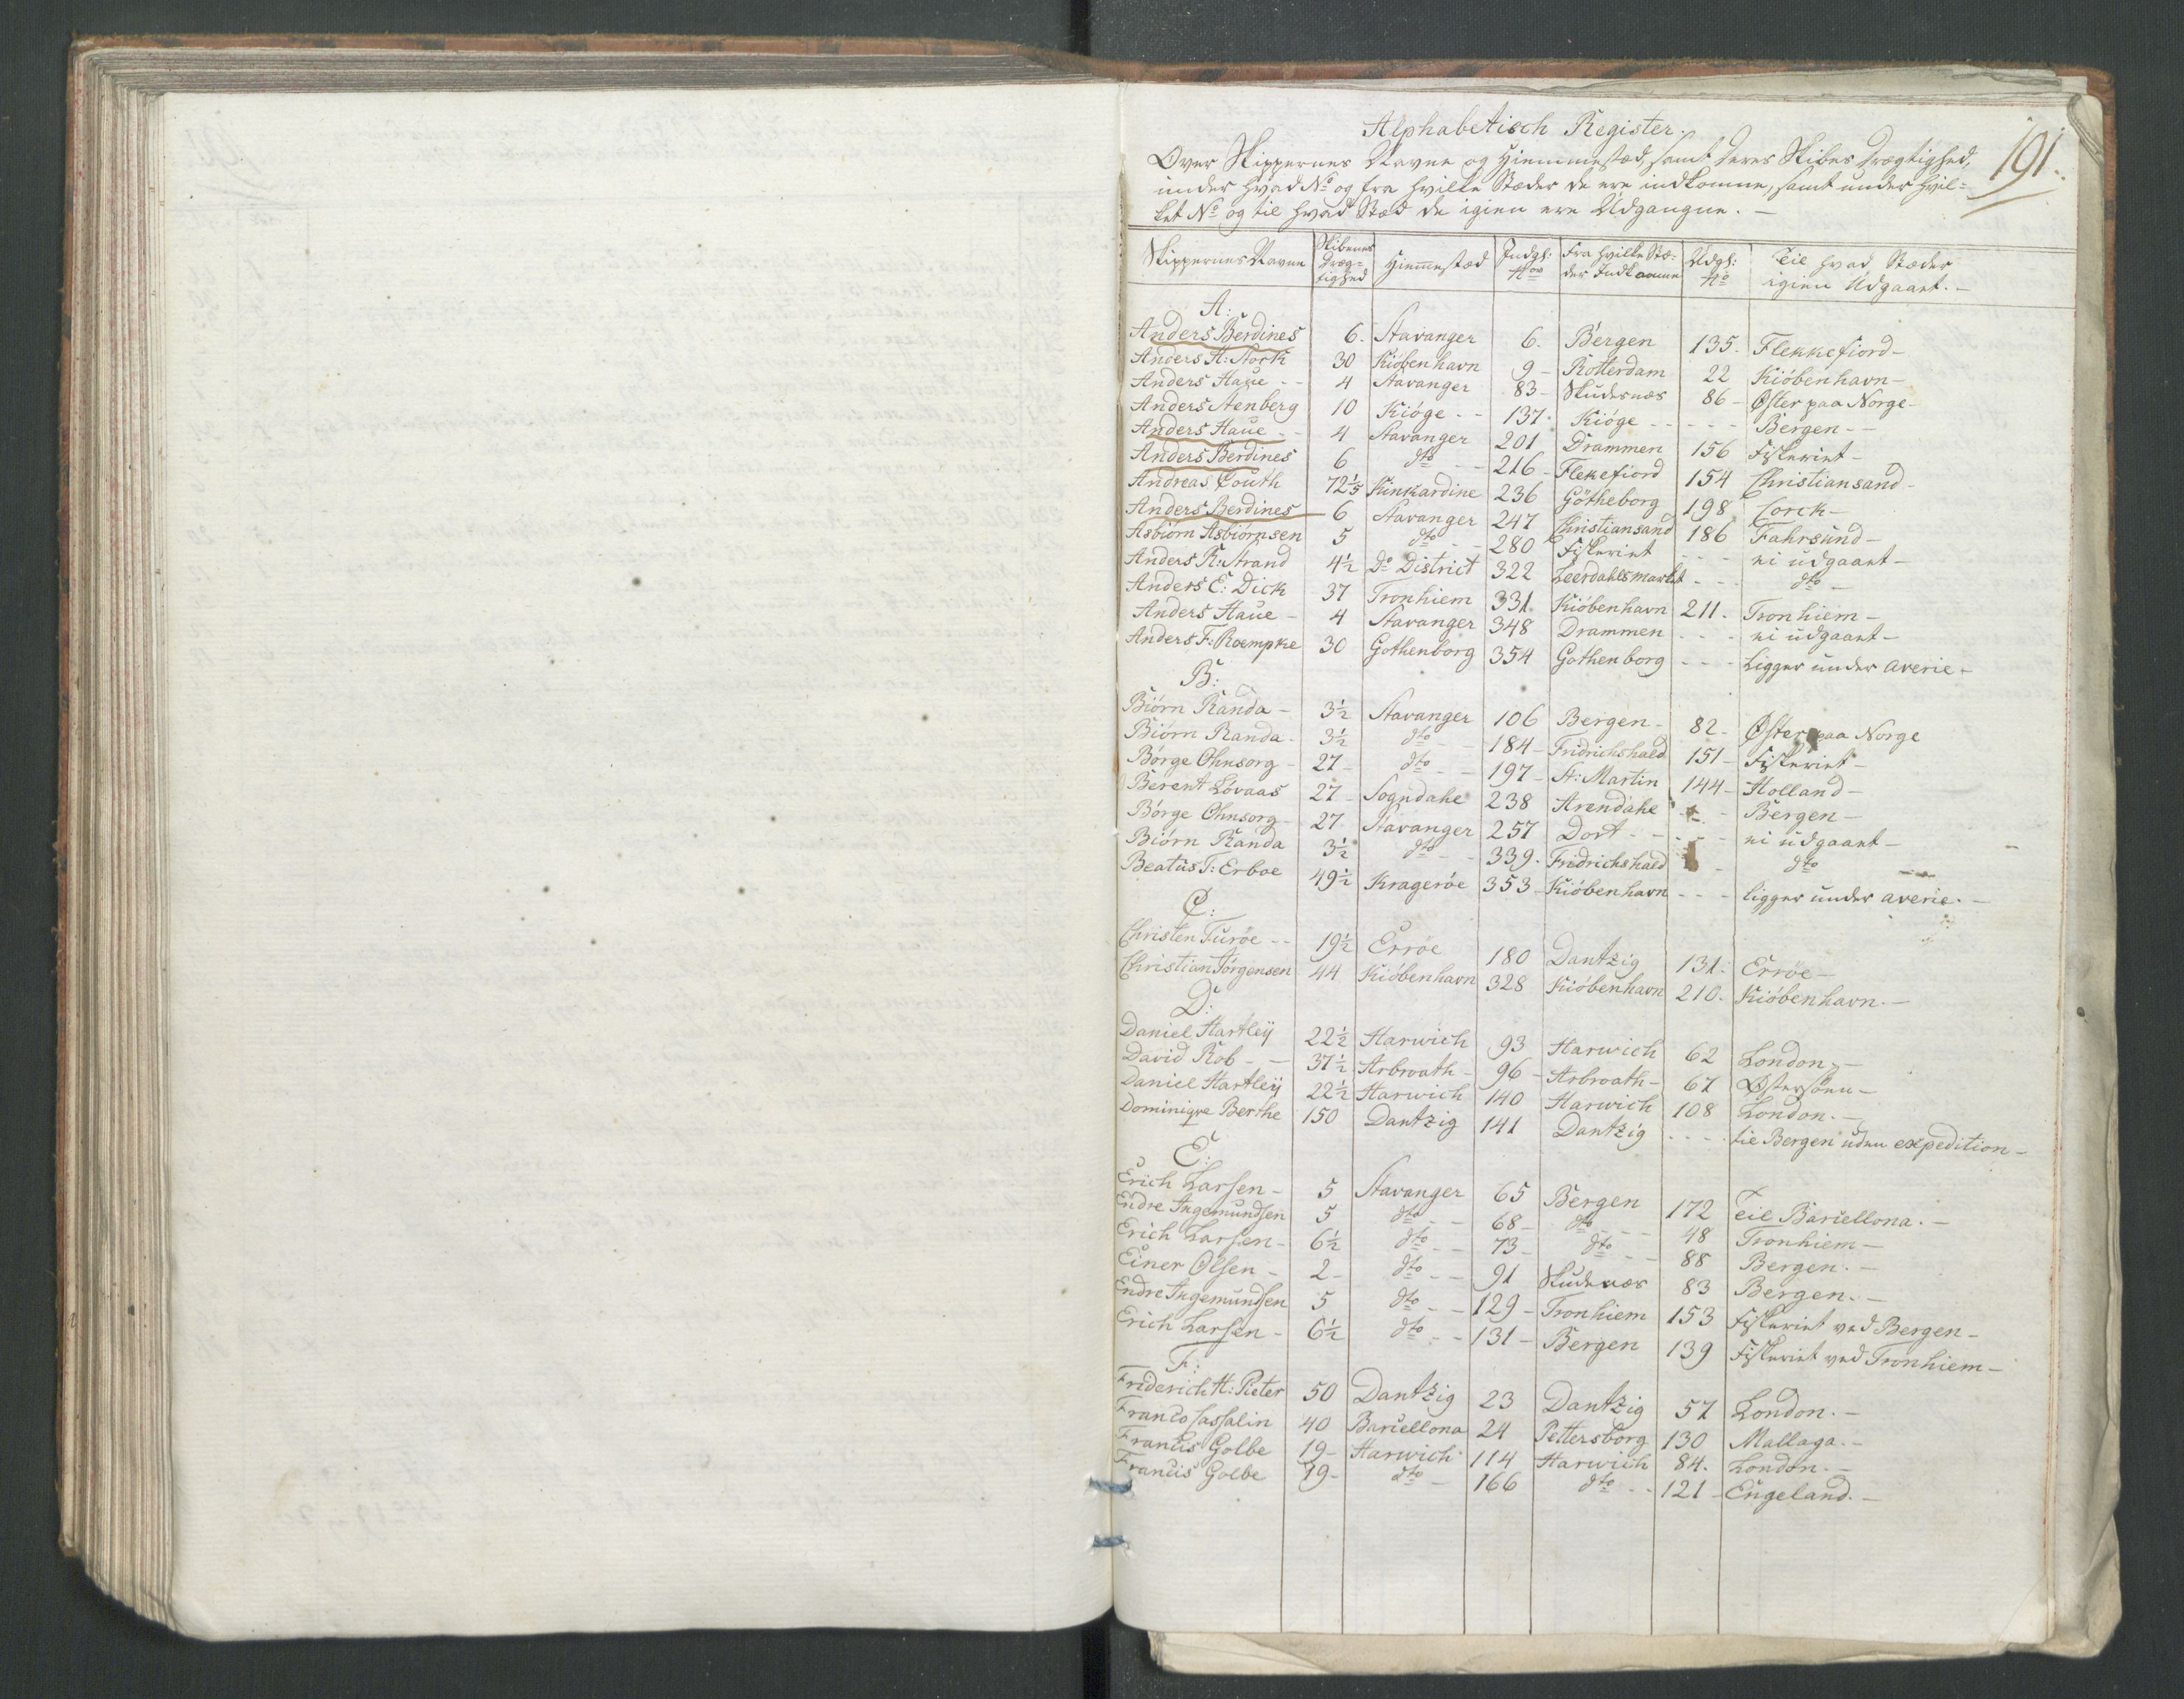 191.
Alphabetisch Register.
Over Skippernes Navne og Hiemmestæd, samt deres Skibes Drægtighed,
under hvad No og fra hvilke Stæder de ere indkomne, samt under hvil-
ket No og til hvad Stæd de igien ere Udgangne. -
Skippernes Navne | Skibenes Dræg- tighed | Hiemmestæd | Indgl: No | Fra hvilke Stæ- der Indkomne | Udgl: No | Til hvad Stæder igien Udgaaet. -
A:
Anders Berdines 6. Stavanger 6. Bergen 135. Flekkefiord -
Anders H: Stock 30 Kiöbenhavn 9 - Rotterdam 22 Kiöbenhavn -
Anders Haue - - 4 Stavanger 83 - Skudesnæs 86 - Øster paa Norge -
Anders Stenberg 10 Kiöge - - 137. Kiöge - - - - - Bergen - -
Anders Haue - - 4 Stavanger 201 Drammen 156 Fiskeriet -
Anders Berdines 6 dto - - 216 - Flekefiord 154 Christiansand -
Andreas Couth 72 1/5 Kinkardine 236 Götheborg 198 Corck -
Anders Berdines 6 Stavanger 247 Christiansand 186 Fahrsund -
Asbiörn Asbiörnsen 5 dto - - 280 Fiskeriet - - - ei udgaaet -
Anders K: Strand 4 1/2 Do District 322 Leerdahlsmarket - - - dto -
Anders E: Dick 37 Tronhiem 331. Kiöbenhavn 211. Tronhiem -
Anders Haue - 4 Stavanger 348 Drammen - - - ei udgaaet -
Anders F: Roempke 30 Gothenborg 354 Gothenborg - - - Ligger under averie -
B:
Biörn Randa - 3 1/2 Stavanger 106 Bergen - 82 - Øster paa Norge
Biörn Randa - 3 1/2 dto - - 184 - Fridrichshald 151 - Fiskeriet -
Börge Ohnsorg - 27 - dto - - 197 - St: Martin 144 - Holland -
Berent Lövaas 27 - Sogndahl 238 Arendahl - - Bergen -
Börge Ohnsorg - 27 Stavanger 257 Dort - - - - - ei udgaaet -
Biörn Randa 3 1/2 dto - - 339. Fridrichshald - dto
Beatus T: Erboe 49 1/2 Kragerøe 353 - Kiöbenhavn - - - ligger under averie. -
C:
Christen Furöe - - 19 1/2 Erröe 180 Dantzig 131. Erröe -
Christian Jörgensen 44 Kiöbenhavn 328 Kiöbenhavn 210. Kiöbenhavn. -
D:
Daniel Hartleÿ 22 1/2 Harwich 93 Harwich 62 London. -
David Rob - - 37 1/2 Arbroath - 96 - Arbroath - 67 Østersöen -
Daniel Hartleÿ 22 1/2 Harwich 140 Harwich 108 London. -
Dominiqve Berthe 150 Dantzig 141 Dantzig - - - til Bergen uden expedition -
E:
Erich Larsen - 5 Stavanger 65 Bergen 172 Til Barcellona. -
Endre Ingemundsen 5 dto - - 68 - dto - - 48 Tronhiem -
Erich Larsen - 6 1/2 dto - - 73 - dto - - 88 Bergen. -
Einer Olsen - 2 - dto - - 91 Skudenæs 83 Bergen. -
Endre Ingemundsen 5 dto - - 129 - Tronhiem 153 Fiskeriet ved Bergen -
Erich Larsen - 6 1/2 dto - - 131 - Bergen 139 Fiskeriet ved Tronhiem -
F:
Friderich H: Pieter 50 Dantzig 23 Dantzig 57 London. -
Franco Cassalin 40 Barcellona 24 Pettersborg 130 Mallaga. -
Francis Golbe 19 - Harwich 114 Harwich 84. London. -
Francis Golbe 19 - dto - 166 dto - - 121 - Engeland. -